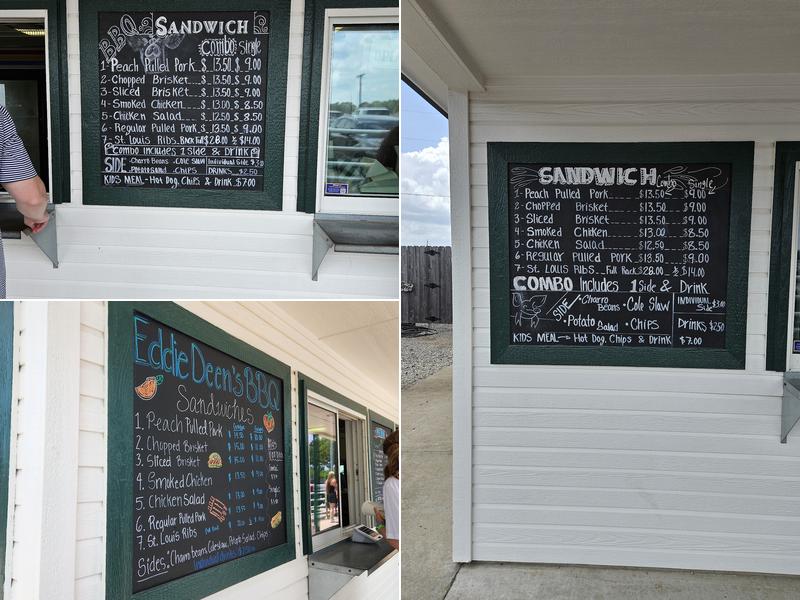 BBQ SANDWICH
Combo Single
1-Peach Pulled Pork $13.50 $9.00
2-Chopped Brisket $13.50 $9.00
3-Sliced Brisket $13.50 $9.00
4-Smoked Chicken $13.00 $8.50
5-Chicken Salad $12.50 $8.50
6-Regular Pulled Pork $13.50 $9.00
7-St. Louis Ribs $28.00 ½ $14.00
Combo includes 1 Side & Drink
SIDE •Charro Beans •Cole Slaw Individual Side
•Potato Salad •CHIPS DRINKS $2.50
KIDS MEAL-Hot Dog, Chips & Drink $7.00
Eddie Deen's BBQ
Sandwiches
1. Peach Pulled Pork
2. Chopped Brisket
3. Sliced Brisket
4. Smoked Chicken
5. Chicken Salad
6. Regular Pulled Pork
7. St. Louis Ribs
Sides: Charro beans, Coleslaw, Potato Salad, Chips
SANDWICH Combo Single
1-Peach Pulled Pork $13.50 $9.00
2-Chopped Brisket $13.50 $9.00
3-Sliced Brisket $13.50 $9.00
4-Smoked Chicken $13.00 $8.50
5-Chicken Salad $12.50 $8.50
6-Regular Pulled Pork $13.50 $9.00
7-St. Louis Ribs Full Rack $28.00 ½ $14.00
COMBO Includes 1 Side & Drink
SIDE •Charro Beans •Cole Slaw INDIVIDUAL Side
•Potato Salad •Chips Drinks $2.50
KIDS MEAL Hot Dog, Chips & Drink $7.00